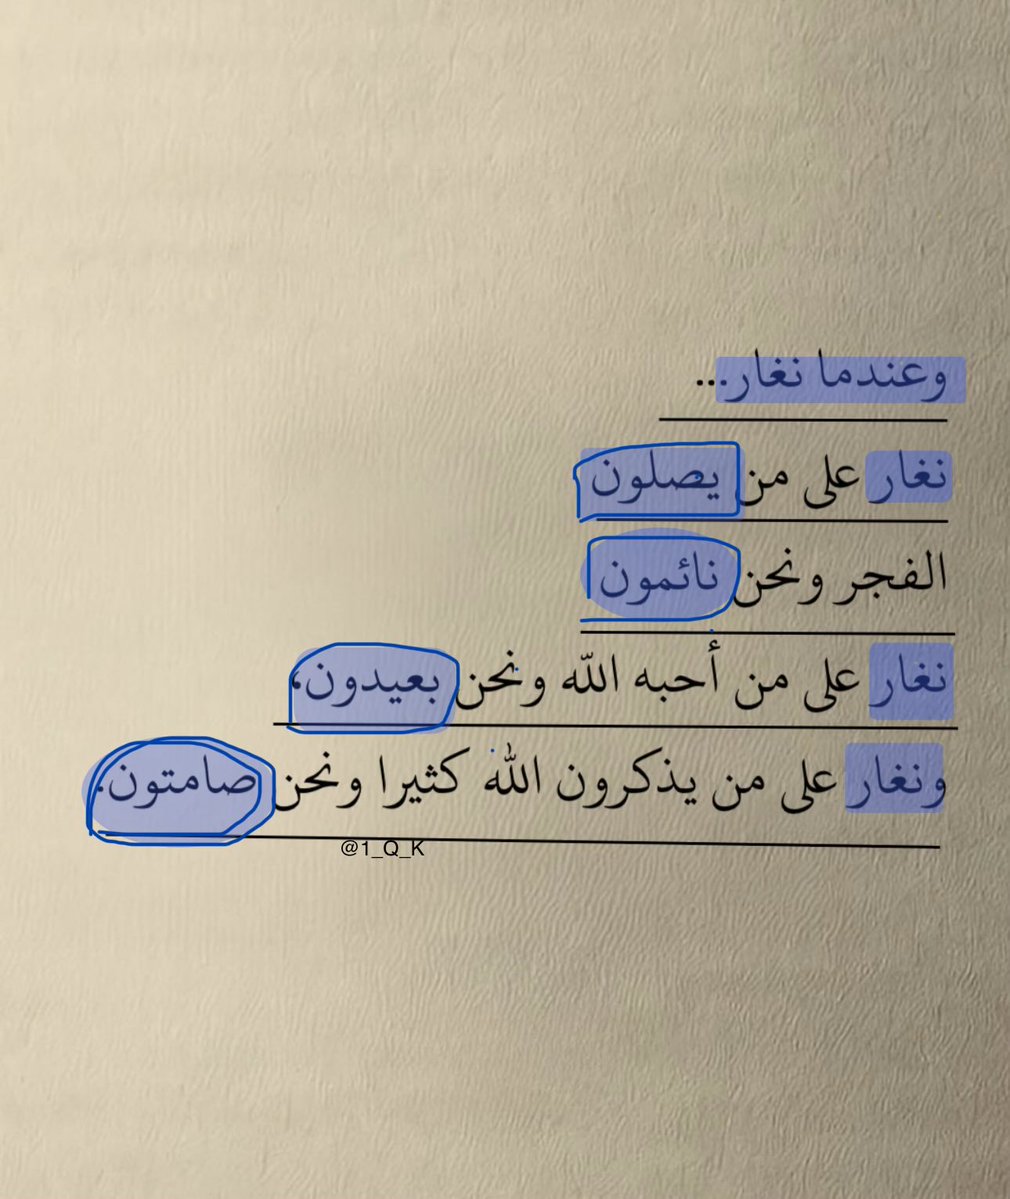 وعندما نغار...
نغار على من يصلون
الفجر ونحن نائمون
نغار على من أحبه الله ونحن بعيدون،
ونغار على من يذكرون الله كثيرا ونحن صامتون.
@1_Q_K